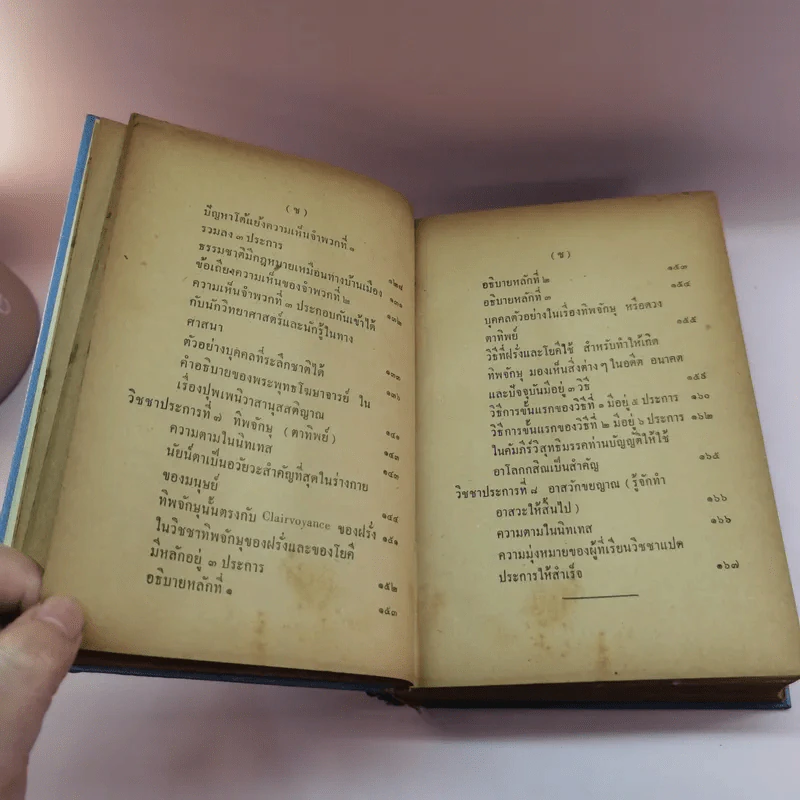 (ช)
ปัญหาโต้แย้งความเห็นจำพวกที่ ๑
รวมลง ๓ ประการ ๑๒๔
ธรรมชาติมีกฎหมายเหมือนทางบ้านเมือง ๑๓๑
ข้อเถียงความเห็นของจำพวกที่ ๒ ๑๓๒
ความเห็นจำพวกที่ ๓ ประกอบกันเข้าได้
กับนักวิทยาศาสตร์และนักรู้ในทาง
ศาสนา ๑๓๓
ตัวอย่างบุคคลที่ระลึกชาติได้ ๑๓๖
คำอธิบายของพระพุทธโฆษาจารย์ ใน
เรื่องปุพเพนิวาสานุสสติญาณ ๑๔๑
วิชชาประการที่ ๗ ทิพจักษุ (ตาทิพย์) ๑๔๓
ความตามในนิทเทส ๑๔๓
นัยน์ตาเป็นอวัยวะสำคัญที่สุดในร่างกาย
ของมนุษย์ ๑๔๔
ทิพจักษุนั้นตรงกับ Clairvoyance ของฝรั่ง ๑๕๑
ในวิชชาทิพจักษุของฝรั่งและของโยคี
มีหลักอยู่ ๓ ประการ ๑๕๒
อธิบายหลักที่ ๑ ๑๕๓
(ซ)
อธิบายหลักที่ ๒ ๑๕๓
อธิบายหลักที่ ๓ ๑๕๔
บุคคลตัวอย่างในเรื่องทิพจักษุ หรือดวง
ตาทิพย์ ๑๕๕
วิธีที่ฝรั่งและโยคีใช้ สำหรับทำให้เกิด
ทิพจักษุ มองเห็นสิ่งต่างๆ ในอดีต อนาคต
และปัจจุบันมีอยู่ ๓ วิธี ๑๕๙
วิธีการขั้นแรกของวิธีที่ ๑ มีอยู่ ๕ ประการ ๑๖๐
วิธีการขั้นแรกของวิธีที่ ๒ มีอยู่ ๖ ประการ ๑๖๒
ในคัมภีร์วิสุทธิมรรคท่านบัญญัติให้ใช้
อาโลกกสิณเป็นสำคัญ ๑๖๕
วิชชาประการที่ ๘ อาสวักขยญาณ (รู้จักทำ
อาสวะให้สิ้นไป) ๑๖๖
ความตามในนิทเทส ๑๖๖
ความมุ่งหมายของผู้ที่เรียนวิชชาแปด
ประการให้สำเร็จ ๑๖๗